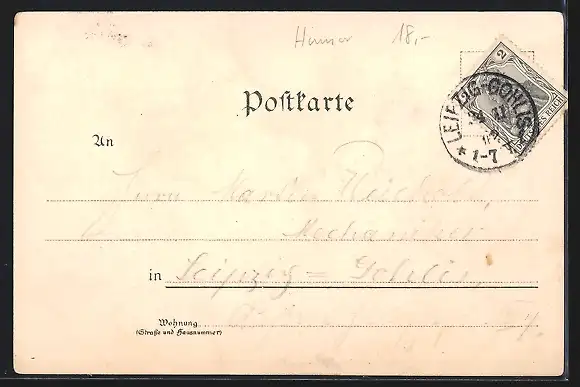 Humor 18,-
2
DEUTSCHES REICH
Postkarte
LEIPZIG-GOHLIS
* 1-7
An
Herrn Martin
Mechaniker
in Leipzig = Gohlis
Wohnung
(Straße und Hausnummer)